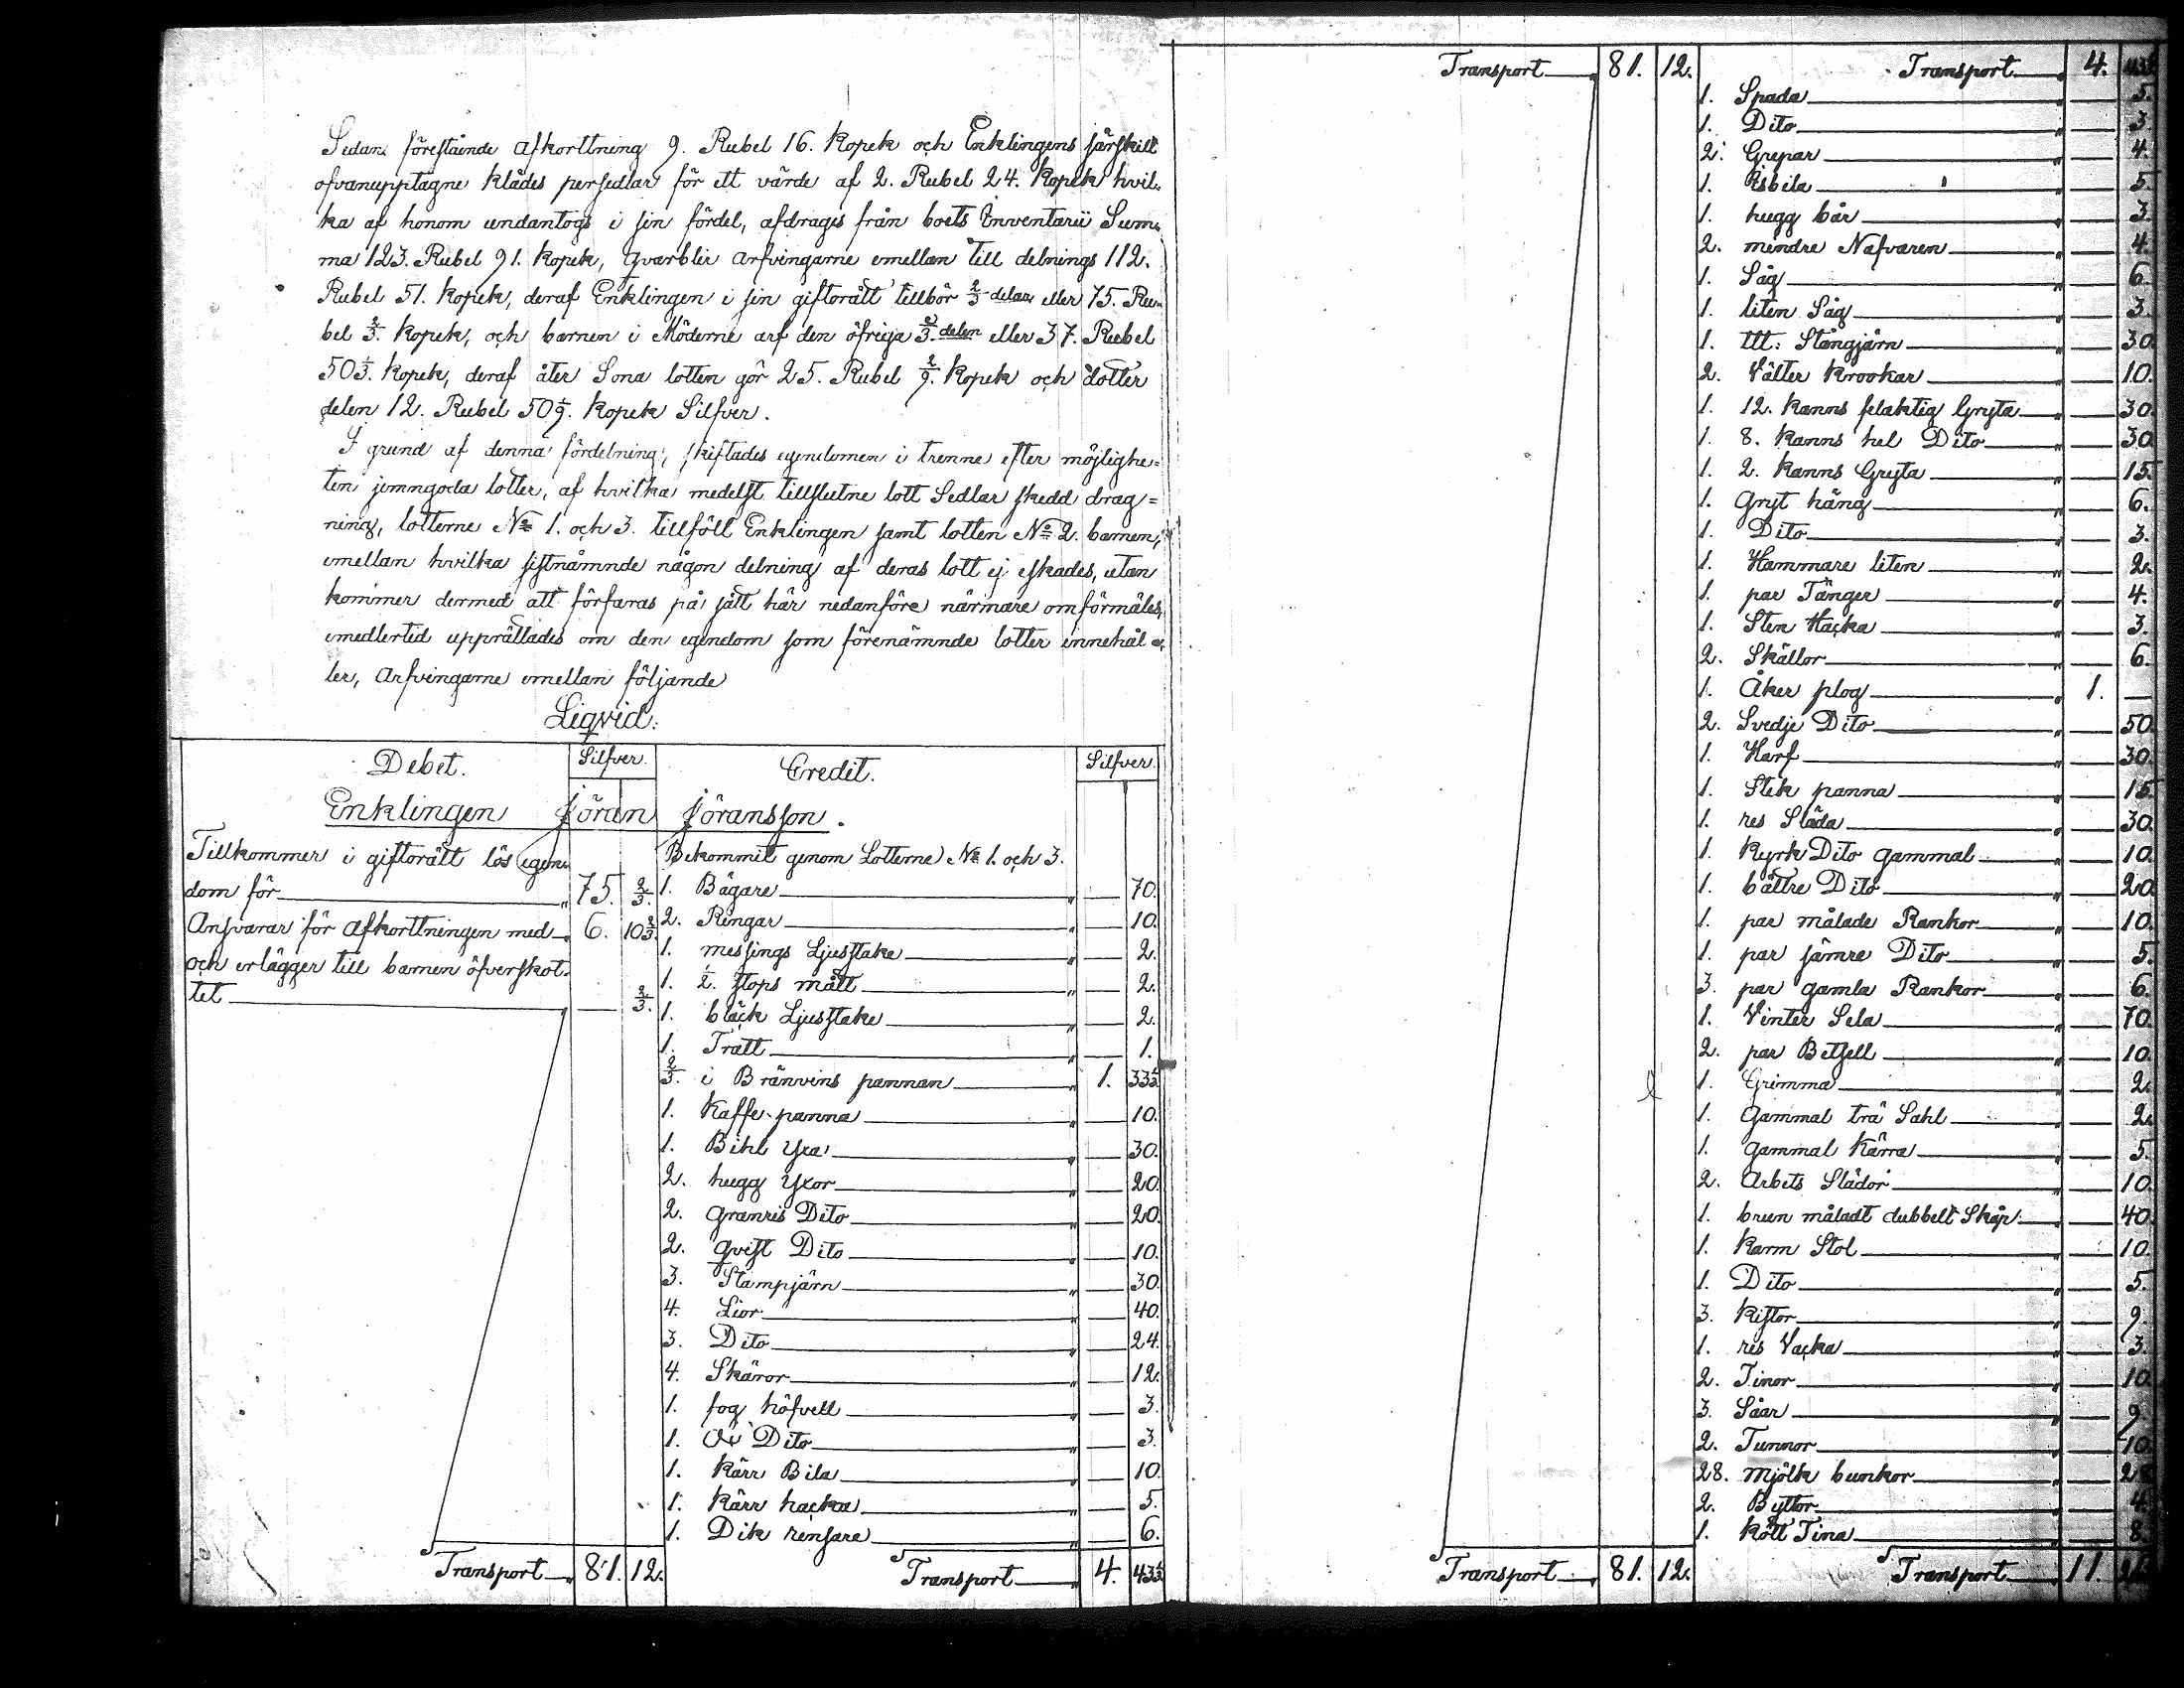 Sedan förestående afkorttning 9. Rubel 16. Kopek och Enklingens särskilt
ofvanupptagne klädes persedlar för ett värde af 2. Rubel 24. Kopek hvil-
ka af honom undantogs i sin fördel, afdrages från boets Inventarii Sum-
ma 123. Rubel 91. kopek, qvarblir arfvingarne emellan till delnings 112.
Rubel 51. kopek, deraf Enklingen i sin giftorätt tillhör 2/3 delar eller 75. Ru-
bel 2/3. kopek, och barnen i Möderne arf den öfriga 3. delen eller 37. Rubel
50 1/3. kopek, deraf åter Sona lotten gör 25. Rubel 2/9. kopek och dotter
delen 12. Rubel 50 1/9. kopek Silfver.
I grund af denna fördelning, skiftades egendomen i trenne efter möjlighe-
ten jemngoda lotter, af hvilka medelst tillslutne lott Sedlar skedd drag=
ning, lotterne No 1. och 3. tillföll Enklingen samt lotten No 2. barnen,
emellan hvilka sistnämnde någon delning af deras lott ej eskades, utan
kommer dermed att förfaras på sätt här nedanföre närmare omförmäles,
emedlertid upprättades om den egendom som förenämnde lotter innehål-
ler, Arfvingarne emellan följande
Liqvid:
Debet. Silfver. Credit. Silfver.
Enklingen Jöran Jöransson.
Tillkommer i giftorätt lös egen-
dom för 75. 2/3.
Ansvarar för afkorttningen med 6. 10 2/3.
och erlägger till barnen öfverskot-
tet — 2/3.
Transport 81. 12.
Bekommit genom Lotterne No 1. och 3.
1. Bägare — 70.
2. Ringar — 10.
1. messings Ljusstake — 2.
1. 1/2. stops mått — 2.
1. bläck Ljusstake — 2.
1. Tratt — 1.
2/3. i Bränvins pannan 1. 33 1/3
1. Kaffe panna — 10.
1. Bihl yxa — 30.
2. hugg yxor — 20.
2. granris Dito — 20.
2. qvist Dito — 10.
3. Stampjärn — 30.
4. Lior — 40.
3. Dito — 24.
4. Skäror — 12.
1. fog höfvell — 3.
1. Ox Dito — 3.
1. Kärr Bila — 10.
1. Kärr hacka — 5.
1. Dik rensare — 6.
Transport 4. 43 1/3
Transport 81. 12.
Transport 81. 12.
Transport 4. 43 1/3
1. Spada — 5.
1. Dito — 3.
2. Grepar — 4.
1. Isbila — 5.
1. hugg bår — 3.
2. mindre Nafvaren — 4.
1. Såg — 6.
1. liten Såg — 3.
1. ttt: Stångjärn — 30.
2. Välter Krookar — 10.
1. 12. kanns felaktig Gryta — 30.
1. 8. kanns hel Dito — 30.
1. 2. kanns Gryta — 15.
1. Gryt häng — 6.
1. Dito — 3.
1. Hammare liten — 2.
1. par Tänger — 4.
1. Sten Hacka — 3.
2. Skällor — 6.
1. Åker plog 1. —
2. Svedje Dito — 50.
1. Harf — 30.
1. Stek panna — 15.
1. res Släda — 30.
1. Kyrk Dito gammal — 10.
1. bättre Dito — 20.
1. par målade Rankor — 10.
1. par sämre Dito — 5.
3. par gamla Rankor — 6.
1. Vinter Sela — 70.
2. par Betsell — 10.
1. Grimma — 2.
1. gammal trä Sahl — 2.
1. gammal Kärra — 5.
2. Arbets Slädor — 10.
1. brun måladt dubbelt Skåp — 40.
1. Karm Stol — 10.
1. Dito — 5.
3. Kistor — 9.
1. res Vacka — 3.
2. Tinor — 10.
3. Såar — 9.
2. Tunnor — 10.
28. mjölk bunkor — 28.
2. Byttor — 4.
1. kött Tina — 8.
Transport 11.